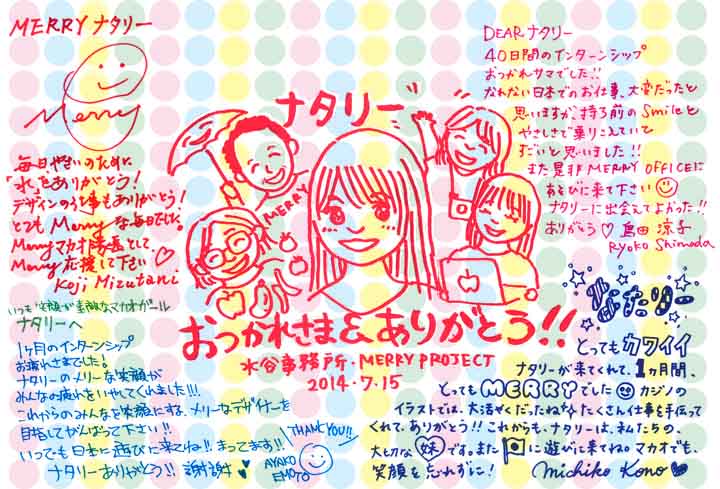 MERRY ナタリー
Merry
毎日、やさいのために
「水」をありがとう!
デザインの仕事もありがとう!
とても Merry な毎日でした。
Merry マカオ隊長として、
Merry 応援して下さい♡
Koji Mizutani
いつも笑顔が素敵なマカオガール
ナタリーへ
1ヶ月のインターンシップ
お疲れさまでした!
ナタリーのメリーな笑顔が
みんなの疲れをいやしてくれました!!!
これからのみんなを笑顔にする、メリーなデザイナーを
目指してがんばって下さい!!
いつでも日本に遊びに来てね!! まってます!!
ナタリーありがとう!! 謝謝 ♥
THANK YOU!!
AYAKO
EMOTO
ナタリー
MERRY
おつかれさま&ありがとう!!
水谷事務所・MERRY PROJECT
2014・7・15
DEAR ナタリー
40日間のインターンシップ
おつかれサマでした!!
なれない日本でのお仕事、大変だったと
思いますが、持ち前のSmileと
やさしさで乗りこえていて
すごいと思いました!!
また是非 MERRY OFFICEに
あそびに来て下さい
ナタリーに出会えてよかった!!
ありがとう♡ 島田 涼子
Ryoko Shimada
なたりー
とってもカワイイ
ナタリーが来てくれて、1ヵ月間、
とってもMERRYでした カジノの
イラストでは、大活やくだったね☆ たくさん仕事を手伝って
くれて、ありがとう!! これからも、ナタリーは、私たちの、
大切な 妹 です。また に遊びに来てね。マカオでも、
笑顔を忘れずに! Michiko Kono ♥